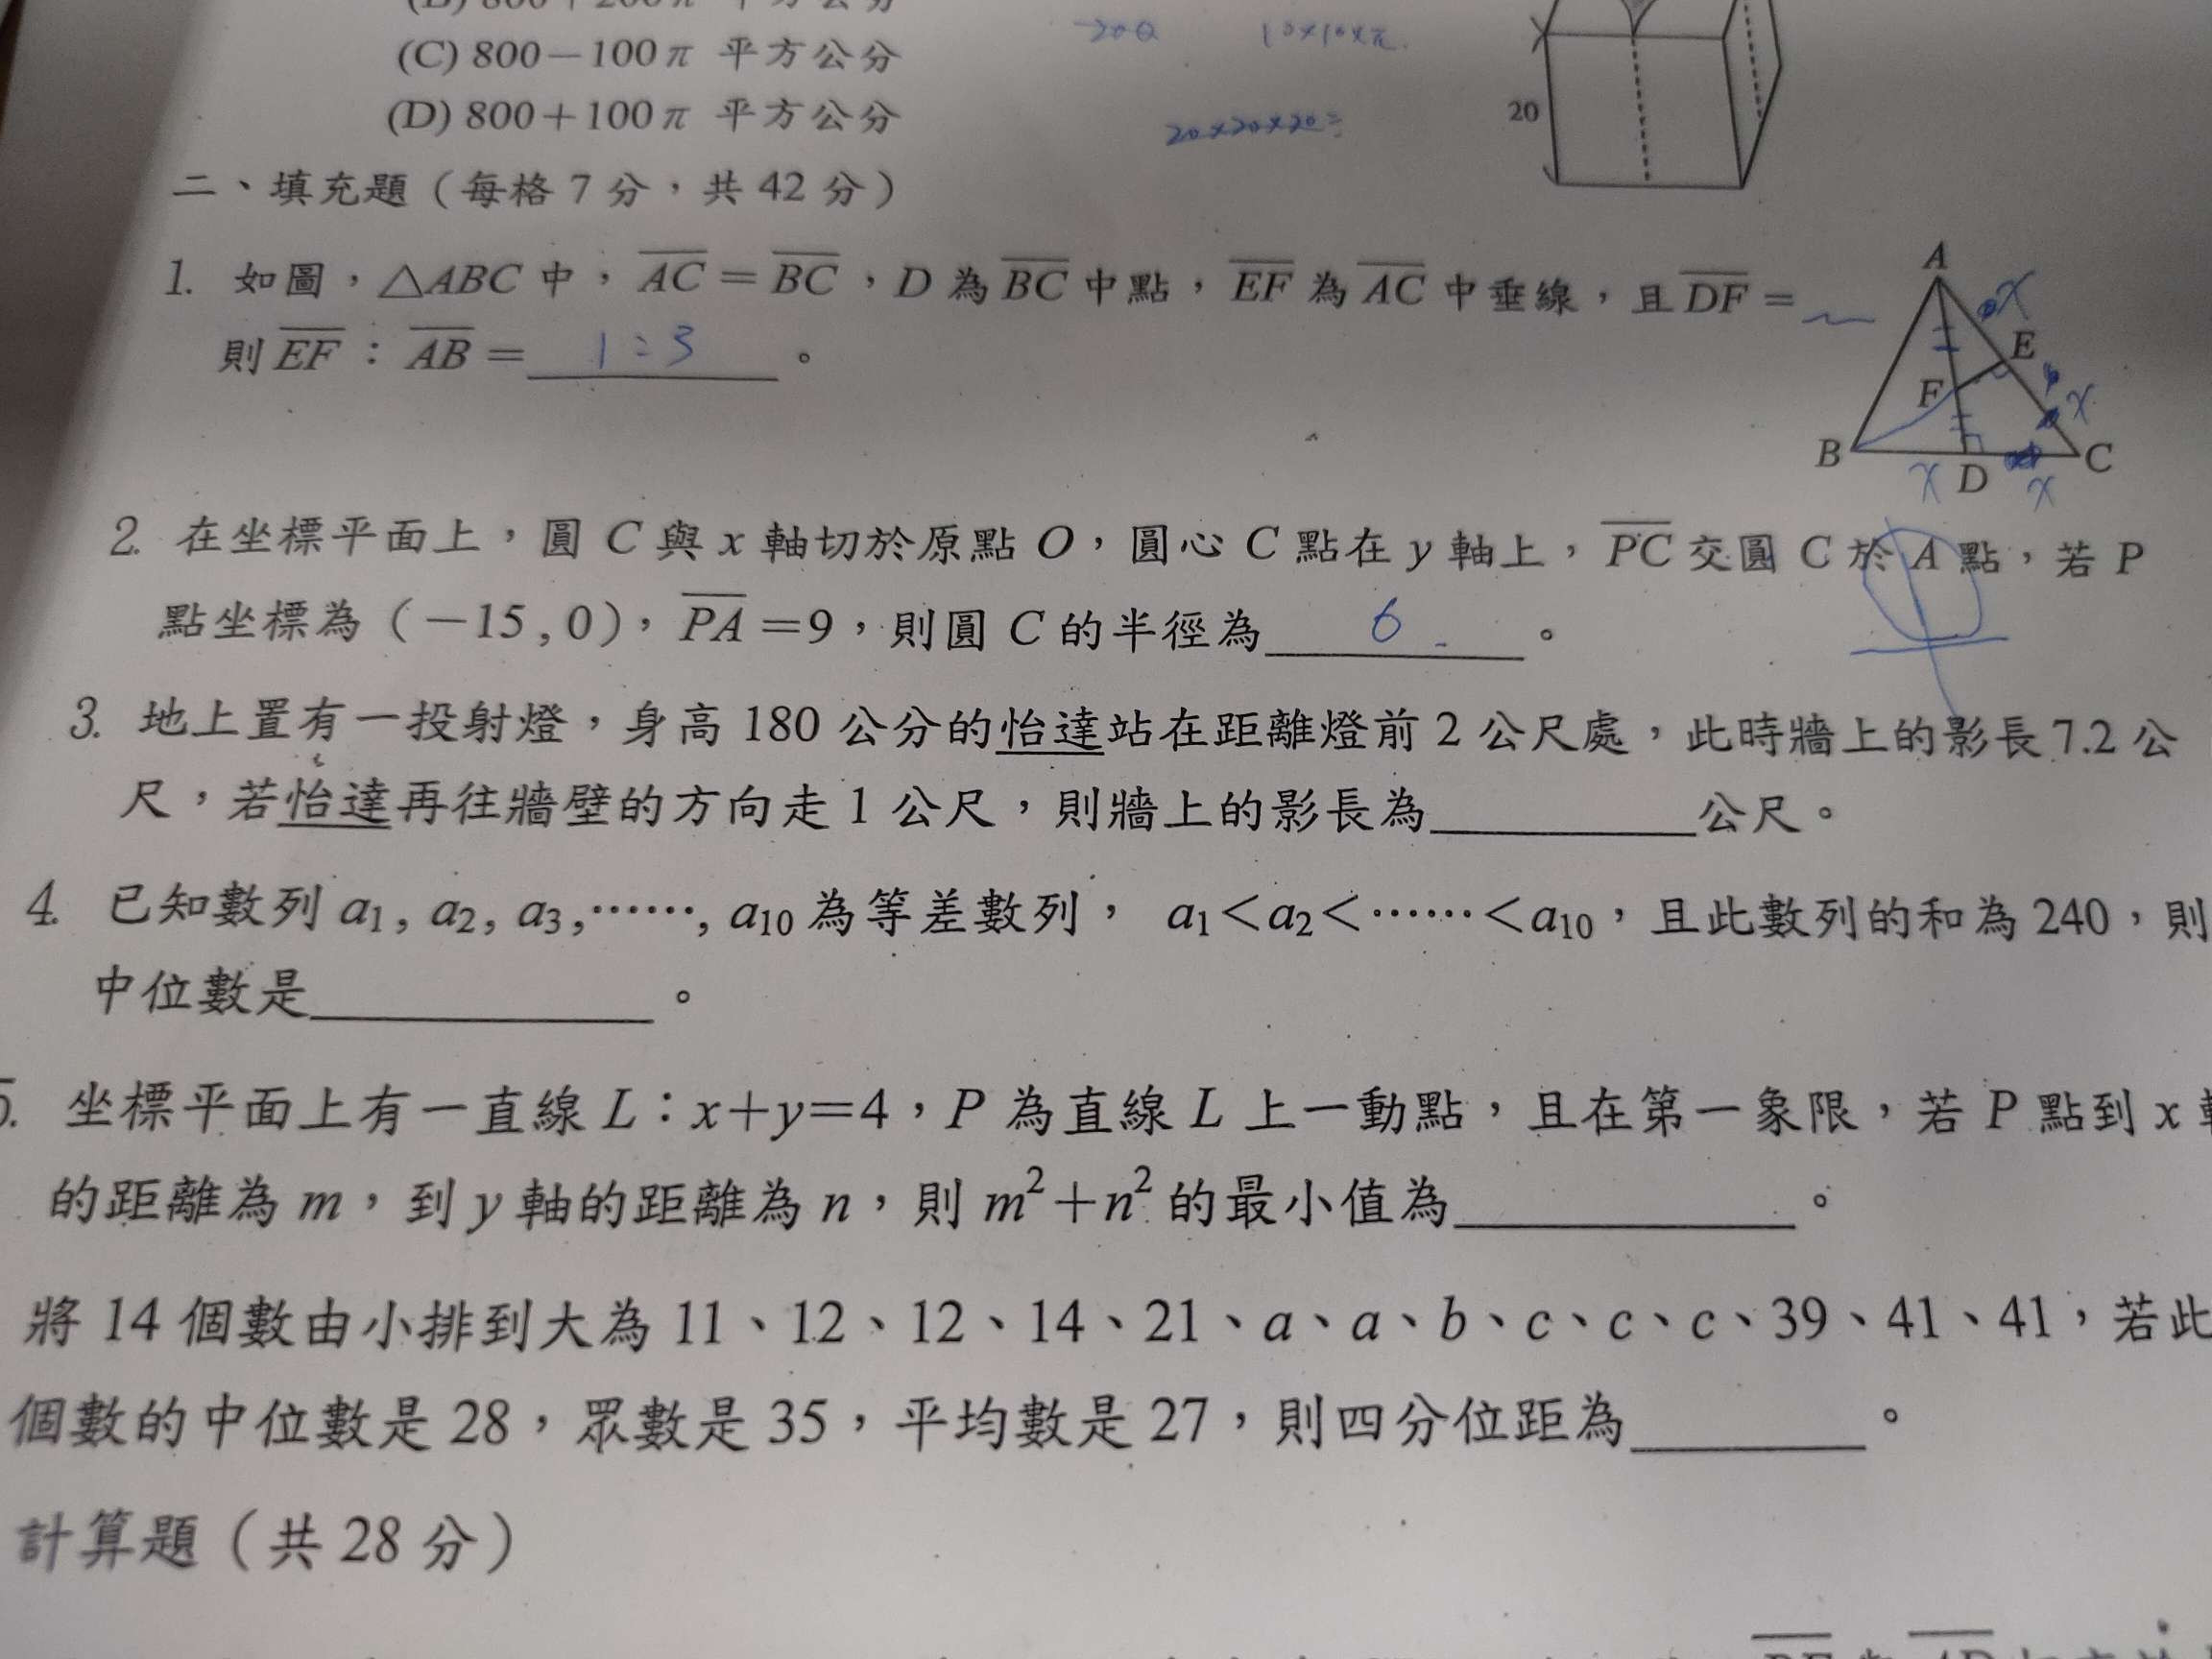 (C) 800－100π 平方公分
(D) 800＋100π 平方公分
20×20×20=
20
二、填充題（每格 7 分，共 42 分）
1. 如圖，△ABC 中，AC＝BC，D 為 BC 中點，EF 為 AC 中垂線，且 DF＝
則 EF：AB＝ 1:3 。
A
x
E
F
x
B
C
x D x
2. 在坐標平面上，圓 C 與 x 軸切於原點 O，圓心 C 點在 y 軸上，PC 交圓 C 於 A 點，若 P
點坐標為（－15 , 0），PA＝9，則圓 C 的半徑為 6 。
3. 地上置有一投射燈，身高 180 公分的怡達站在距離燈前 2 公尺處，此時牆上的影長 7.2 公
尺，若怡達再往牆壁的方向走 1 公尺，則牆上的影長為 公尺。
4. 已知數列 a₁, a₂, a₃,……, a₁₀ 為等差數列， a₁＜a₂＜……＜a₁₀，且此數列的和為 240，則
中位數是 。
坐標平面上有一直線 L：x＋y＝4，P 為直線 L 上一動點，且在第一象限，若 P 點到 x
的距離為 m，到 y 軸的距離為 n，則 m²＋n² 的最小值為 。
將 14 個數由小排到大為 11、12、12、14、21、a、a、b、c、c、c、39、41、41，若此
個數的中位數是 28，眾數是 35，平均數是 27，則四分位距為 。
計算題（共 28 分）